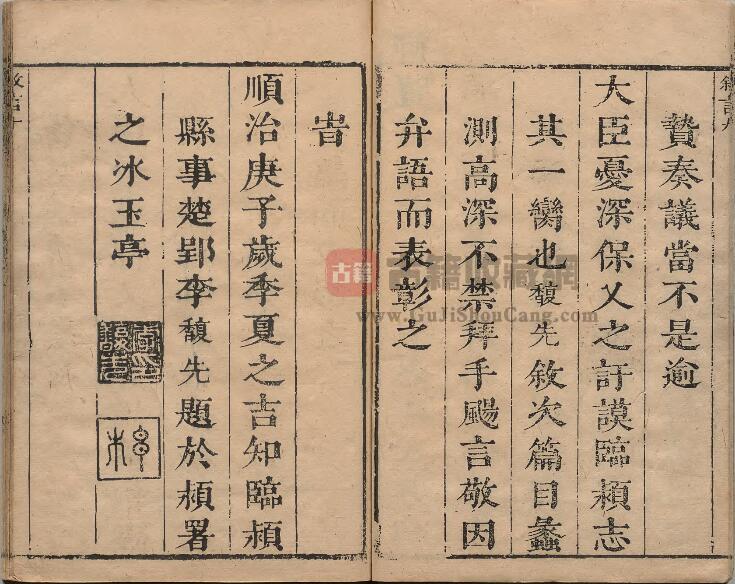 敘言九
贄奏議當不是逾
大臣憂深保乂之訏謨臨潁志
其一臠也馥先敘次篇目蠡
測高深不禁拜手颺言敬因
弁語而表彰之
古籍 古籍收藏網
www.GuJiShouCang.com
旹
順治庚子歲季夏之吉知臨潁
縣事楚郢李馥先題於潁署
之冰玉亭
敘言十